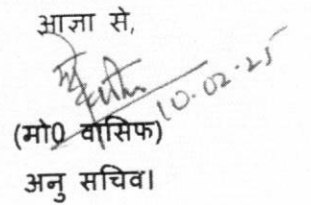 आज्ञा से,
10.02.25
(मो0 वासिफ)
अनु सचिव।